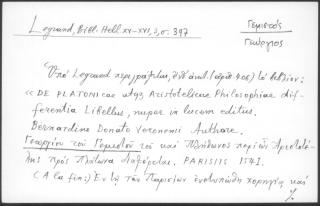 Legrand, Bibl. Hell. XV-XVI, 3, σ. 397
Γεμιστός
Γεώργιος
Ὑπό Legrand περιγράφεται, ὑπ' ἀριθ. 406) τό βιβλίον:
« DE PLATONICAE atque Aristotelicae Philosophiae dif-
ferentia Libellus, nuper in lucem editus.
Bernardino Donato Veronensi Authore.
Γεωργίου τοῦ Γεμιστοῦ τοῦ καί Πλήθωνος περί ὧν Ἀριστοτέ-
λης πρός Πλάτωνα διαφέρεται. PARISIIS 1541.
(A la fin:) Ἐν τῇ τῶν Παρισίων ἐνετυπώθη χορηγίᾳ καί